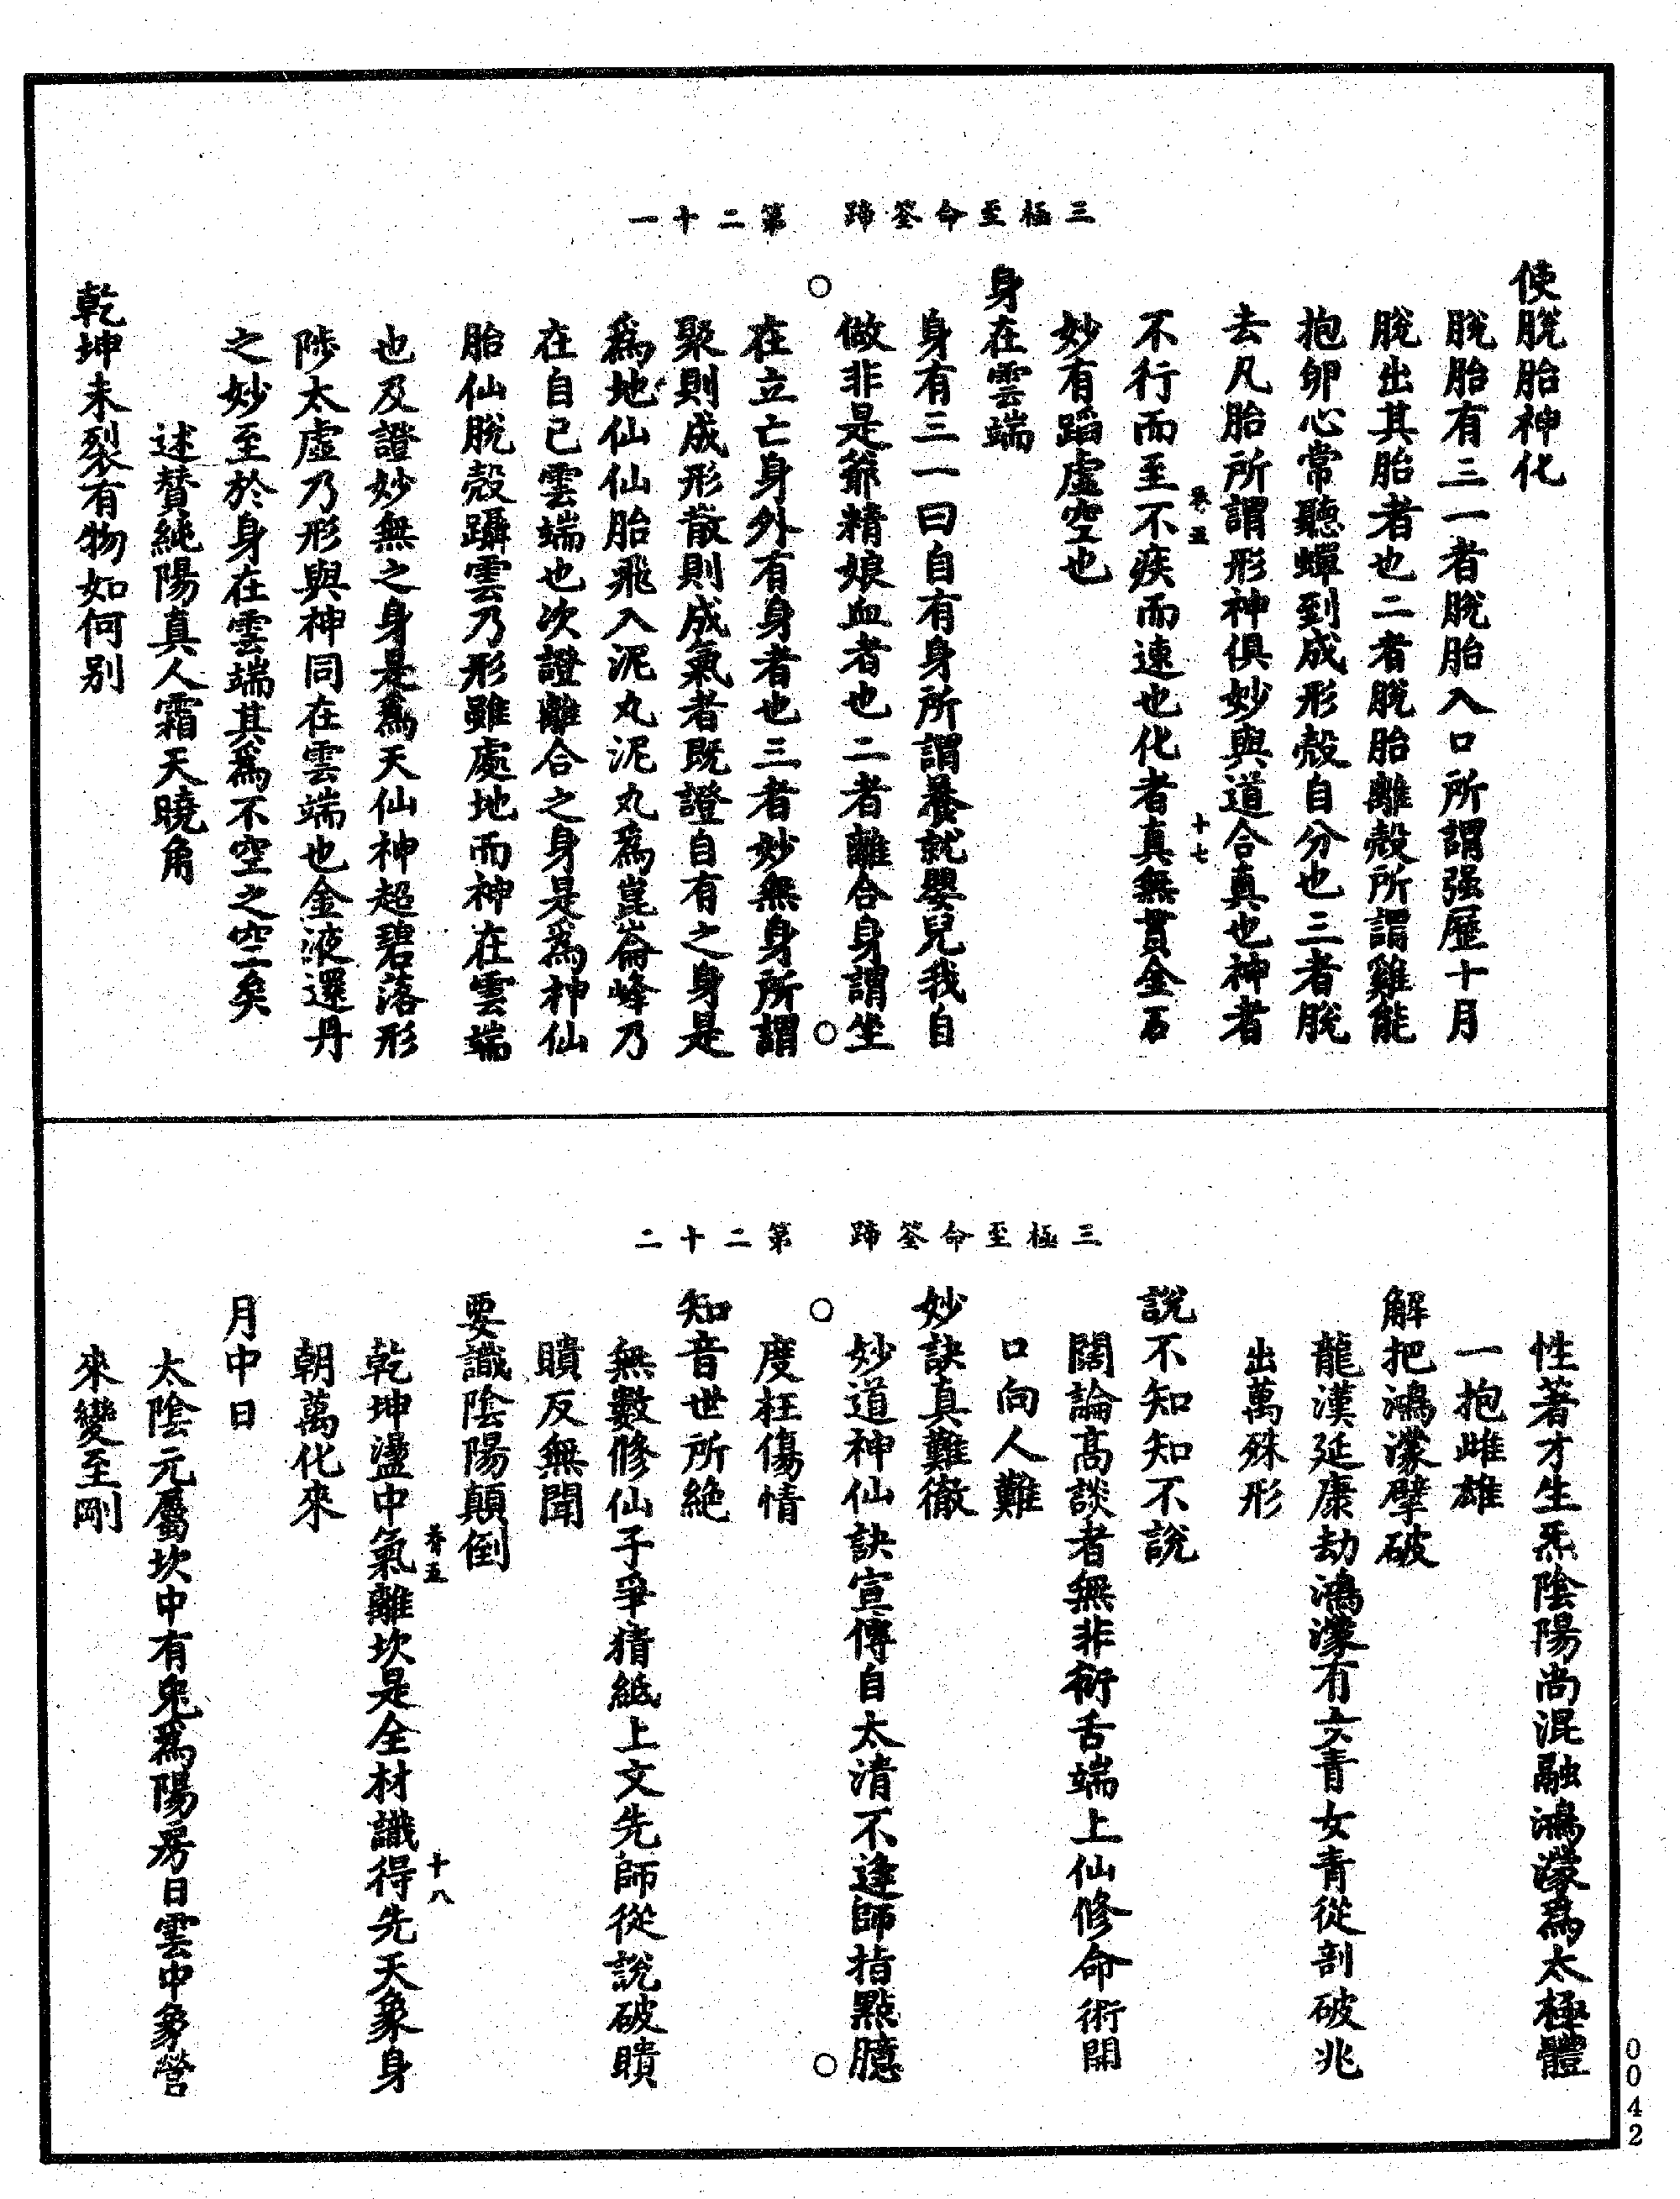 三極至命筌蹄　第二十一
使脫胎神化
脫胎有三一者脫胎入口所謂强歷十月
脫出其胎者也二者脫胎離殼所謂雞能
抱卵心常聽蟬到成形殼自分也三者脫
去凡胎所謂形神俱妙與道合真也神者
卷五　十七
不行而至不疾而速也化者真無貫金石
妙有蹈虛空也
身在雲端
身有三一曰自有身所謂養就嬰兒我自
做非是爺精娘血者也二者離合身謂坐
在立亡身外有身者也三者妙無身所謂
聚則成形散則成氣者既證自有之身是
爲地仙仙胎飛入泥丸泥丸爲崑崙峰乃
在自己雲端也次證離合之身是爲神仙
胎仙脫殼躡雲乃形雖處地而神在雲端
也及證妙無之身是爲天仙神超碧落形
陟太虛乃形與神同在雲端也金液還丹
之妙至於身在雲端其爲不空之空矣
述賛純陽真人霜天曉角
乾坤未裂有物如何别
三極至命筌蹄　第二十二
性著才生炁陰陽尚混融鴻濛爲太極體
一抱雌雄
解把鴻濛擘破
龍漢延康劫鴻濛有女青女青從剖破兆
出萬殊形
說不知知不說
闊論髙談者無非衒舌端上仙修命術開
口向人難
妙訣真難徹
妙道神仙訣宣傳自太清不逢師指點臆
度枉傷情
知音世所絶
無數修仙子爭猜紙上文先師從說破瞶
瞶反無聞
要識陰陽顛倒
卷五　十八
乾坤盪中氣離坎是全材識得先天象身
朝萬化來
月中日
太陰元屬坎中有兔爲陽房日雲中象營
來變至剛
0042